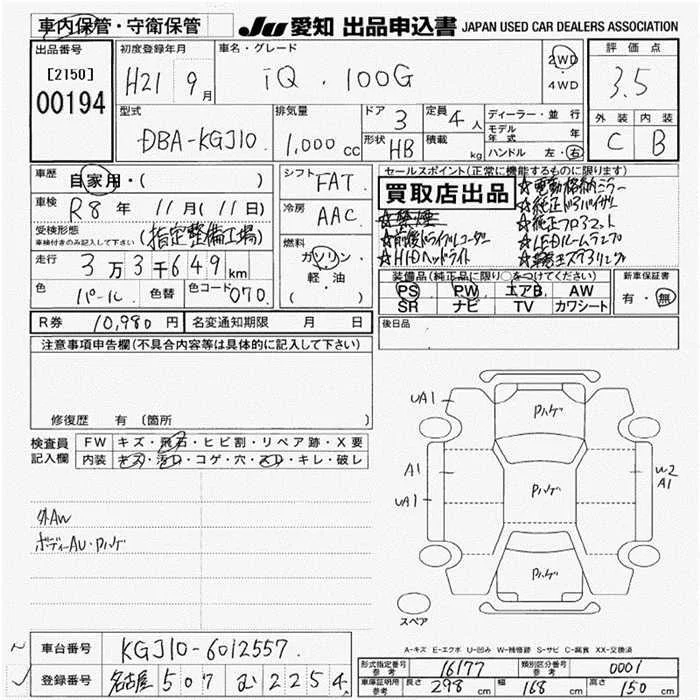 車内保管・守衛保管 JU 愛知 出品申込書 JAPAN USED CAR DEALERS ASSOCIATION
出品番号 [2150] 00194
初度登録年月 H21 9月
車名・グレード iQ . 100G
2WD ・ 4WD
評価点 3.5
外装 C 内装 B
型式 DBA-KGJ10.
排気量 1,000 cc
ドア 3 定員 4人
形状 HB 積載 kg
ディーラー・並行
モデル年式 年
ハンドル 左・右
車歴 自家用・( )
車検 R8年 11月(11日)
受検形態 車検付きのみ記入して下さい (指定整備工場)
走行 3万3千649km
色 パール. 色替 色コード 070.
シフト FAT.
冷房 AAC.
燃料 ガソリン・軽・油 ( )
セールスポイント(正常に機能するものに限ります)
買取店出品
☆電動格納ミラー
☆純正ドアバイザー
☆禁煙
☆純正フロアマット
☆前後ドライブレコーダー
☆LEDルームランプ
☆HIDヘッドライト
装備品(純正品に限り○をつけてください)
PS PW エアB AW
SR ナビ TV カワシート
新車保証書 有・無
R券 10,980円 名変通知期限 月 日
後日品
注意事項申告欄(不具合内容等は具体的に記入して下さい)
修復歴 有 (箇所 )
検査員記入欄
FW キズ・飛石・ヒビ割・リペア跡・X要
内装 キズ・汚れ・コゲ・穴・スレ・キレ・破レ
外AW
ボディーAU・Pハゲ
UA1
Pハゲ
A1
W2
A1
UA1
Pハゲ
Pハゲ
スペア
A-キズ E-エクボ U-凹み W-補修跡 S-サビ C-腐食 XX-交換済
車台番号 KGJ10-6012557.
登録番号 名古屋 507 む 2254
形式指定番号 参考 16177 類別区分番号 参考 0001
車庫証明用 参考 長さ 298cm 幅 168cm 高さ 150cm